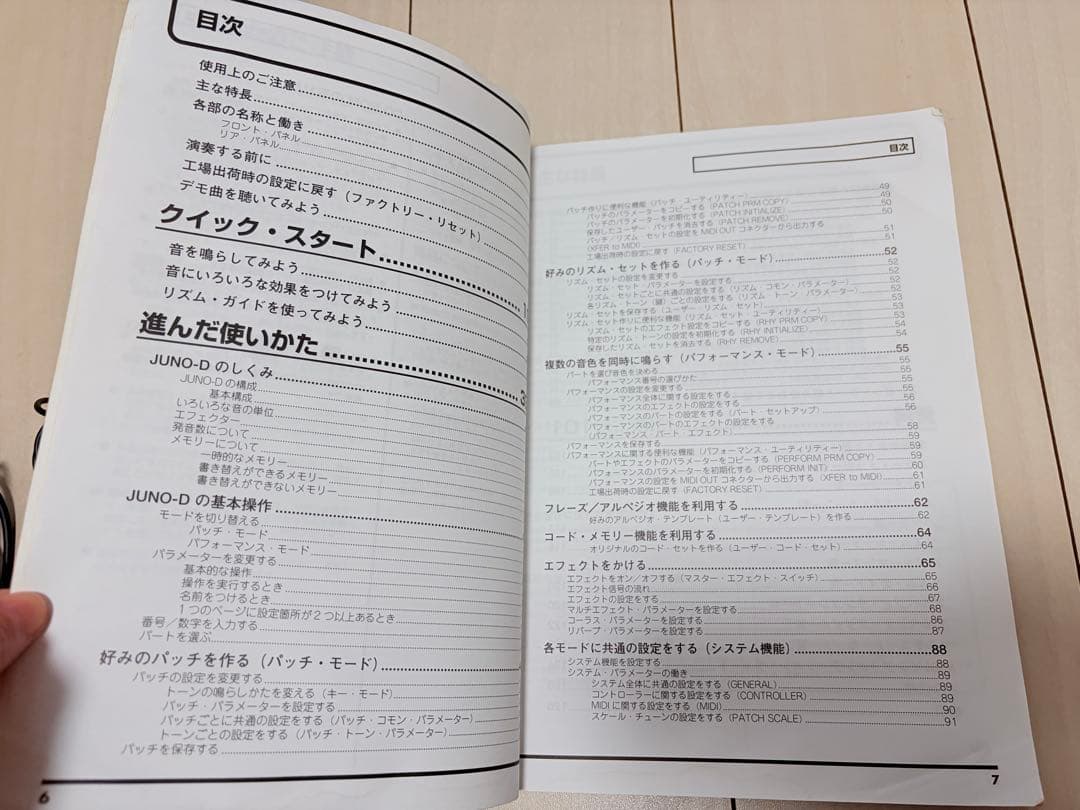 目次
使用上のご注意
主な特長
各部の名称と働き
フロント・パネル
リア・パネル
演奏する前に
工場出荷時の設定に戻す（ファクトリー・リセット）
デモ曲を聴いてみよう
クイック・スタート
音を鳴らしてみよう
音にいろいろな効果をつけてみよう
リズム・ガイドを使ってみよう
進んだ使いかた
JUNO-D のしくみ
JUNO-D の構成
基本構成
いろいろな音の単位
エフェクター
発音数について
メモリーについて
一時的なメモリー
書き替えができるメモリー
書き替えができないメモリー
JUNO-D の基本操作
モードを切り替える
パッチ・モード
パフォーマンス・モード
パラメーターを変更する
基本的な操作
操作を実行するとき
名前をつけるとき
1つのページに設定箇所が2つ以上あるとき
番号／数字を入力する
パートを選ぶ
好みのパッチを作る（パッチ・モード）
パッチの設定を変更する
トーンの鳴らしかたを変える（キー・モード）
パッチ・パラメーターを設定する
パッチごとに共通の設定をする（パッチ・コモン・パラメーター）
トーンごとの設定をする（パッチ・トーン・パラメーター）
パッチを保存する
6
目次
パッチ作りに便利な機能（パッチ・ユーティリティー） 49
パッチのパラメーターをコピーする（PATCH PRM COPY） 49
パッチのパラメーターを初期化する（PATCH INITIALIZE） 50
保存したユーザー・パッチを消去する（PATCH REMOVE） 50
パッチ／リズム・セットの設定を MIDI OUT コネクターから出力する
（XFER to MIDI） 51
工場出荷時の設定に戻す（FACTORY RESET） 51
好みのリズム・セットを作る（パッチ・モード） 52
リズム・セットの設定を変更する 52
リズム・セット・パラメーターを設定する 52
リズム・セットごとに共通の設定をする（リズム・コモン・パラメーター） 52
各リズム・トーン（鍵）ごとの設定をする（リズム・トーン・パラメーター） 52
リズム・セットを保存する（ユーザー・リズム・セット） 53
リズム・セット作りに便利な機能（リズム・セット・ユーティリティー） 53
リズム・セットのエフェクト設定をコピーする（RHY PRM COPY） 53
特定のリズム・トーンの設定を初期化する（RHY INITIALIZE） 54
保存したリズム・セットを消去する（RHY REMOVE） 54
複数の音色を同時に鳴らす（パフォーマンス・モード） 55
パートを選び音色を決める 55
パフォーマンス番号の選びかた 55
パフォーマンスの設定を変更する 55
パフォーマンス全体に関する設定をする 55
パフォーマンスのエフェクトの設定をする 56
パフォーマンスのパートの設定をする（パート・セットアップ） 56
パフォーマンスのパートのエフェクトの設定をする
（パフォーマンス・パート・エフェクト） 58
パフォーマンスを保存する 59
パフォーマンスに関する便利な機能（パフォーマンス・ユーティリティー） 59
パートやエフェクトのパラメーターをコピーする（PERFORM PRM COPY） 59
パフォーマンスのパラメーターを初期化する（PERFORM INIT） 60
パフォーマンスの設定を MIDI OUT コネクターから出力する（XFER to MIDI） 61
工場出荷時の設定に戻す（FACTORY RESET） 61
フレーズ／アルペジオ機能を利用する 62
好みのアルペジオ・テンプレート（ユーザー・テンプレート）を作る 62
コード・メモリー機能を利用する 64
オリジナルのコード・セットを作る（ユーザー・コード・セット） 64
エフェクトをかける 65
エフェクトをオン／オフする（マスター・エフェクト・スイッチ） 65
エフェクト信号の流れ 66
エフェクトの設定をする 67
マルチエフェクト・パラメーターを設定する 68
コーラス・パラメーターを設定する 86
リバーブ・パラメーターを設定する 87
各モードに共通の設定をする（システム機能） 88
システム機能を設定する 88
システム・パラメーターの働き 89
システム全体に共通の設定をする（GENERAL） 89
コントローラーに関する設定をする（CONTROLLER） 89
MIDI に関する設定をする（MIDI） 90
スケール・チューンの設定をする（PATCH SCALE） 91
7